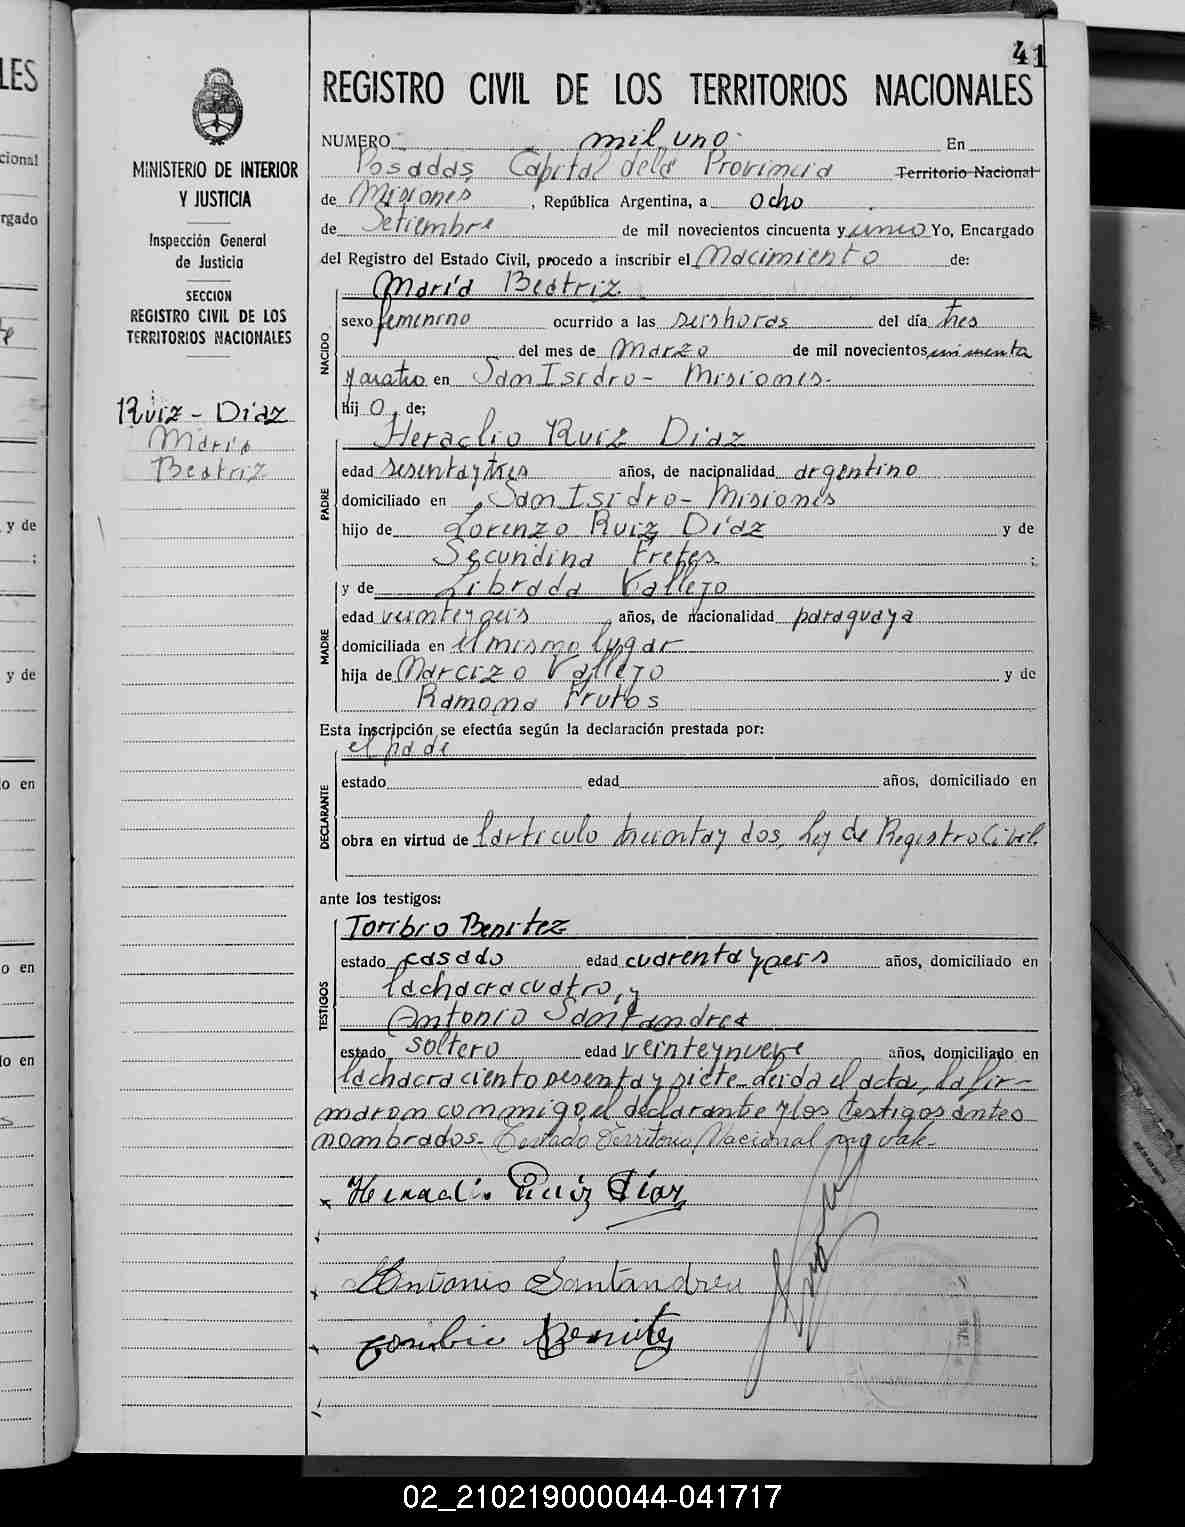 LES
cional
rgado
y de
;
y de
o en
o en
lo en
41
REGISTRO CIVIL DE LOS TERRITORIOS NACIONALES
MINISTERIO DE INTERIOR
Y JUSTICIA
Inspección General
de Justicia
SECCION
REGISTRO CIVIL DE LOS
TERRITORIOS NACIONALES
Ruiz - Diaz
Maria
Beatriz
NUMERO mil uno En
Posadas, Capital dela Provincia Territorio Nacional
de Misiones, República Argentina, a ocho
de Setiembre de mil novecientos cincuenta y uno Yo, Encargado
del Registro del Estado Civil, procedo a inscribir el Nacimiento de:
NACIDO
María Beatriz
sexo femenino ocurrido a las seis horas del día tres
del mes de Marzo de mil novecientos
y cuatro en San Isidro - Misiones.
hij o, de;
PADRE
Heraclio Ruiz Diaz
edad sesenta y tres años, de nacionalidad argentino
domiciliado en San Isidro - Misiones
hijo de Lorenzo Ruiz Diaz y de
Secundina Fretes ;
MADRE
y de Librada Vallejo
edad veinte y seis años, de nacionalidad paraguaya
domiciliada en el mismo lugar
hija de Marcizo Vallejo y de
Ramona Frutos
Esta inscripción se efectúa según la declaración prestada por:
DECLARANTE
el padre
estado edad años, domiciliado en
obra en virtud de lartículo treinta y dos, Ley de Registro Civil.
ante los testigos:
TESTIGOS
Toribio Benitez
estado casado edad cuarenta y seis años, domiciliado en
lachacra cuatro, y
Antonio Santandreu
estado soltero edad veinte y nueve años, domiciliado en
lachacra ciento sesenta y siete. Leida el acta, la fir-
maron conmigo, el declarante y los testigos antes
nombrados- Testado: Territorio Nacional, no vale.
Heraclio Ruiz Diaz
Antonio Santandreu
Toribio Benitez
02_210219000044-041717